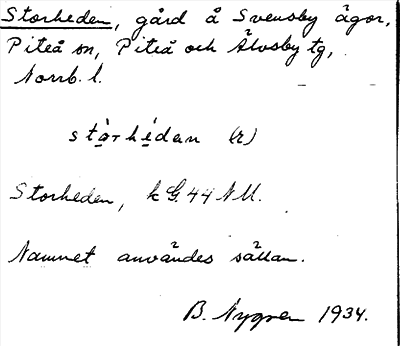 Storheden, gård å Svensby ägor,
Piteå sn, Piteå och Älvsby tg,
Norrb. l.
stàrhédan (r)
Storheden, k G. 44 NU.
Namnet användes sällan.
B. Nygren 1934.